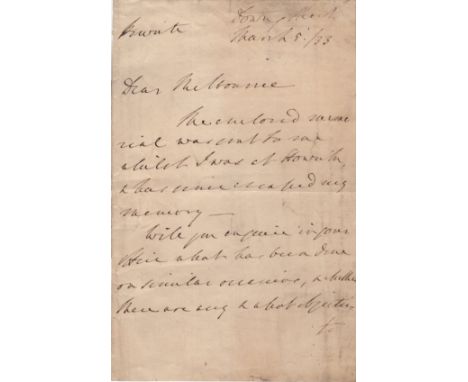 Private
Downing Street
March 5. /33
Dear Melbourne
The enclosed memo
rial was sent to me
whilst I was at Howick,
& has since escaped my
memory —
Will you enquire in your
Office what has been done
on similar occasions, & whether
there are any & what objections
to